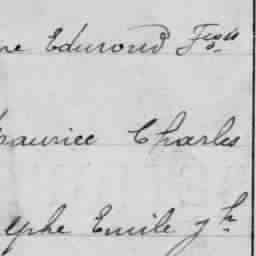 ne Edmond Fois
aurice Charles
ephe Emile Jh